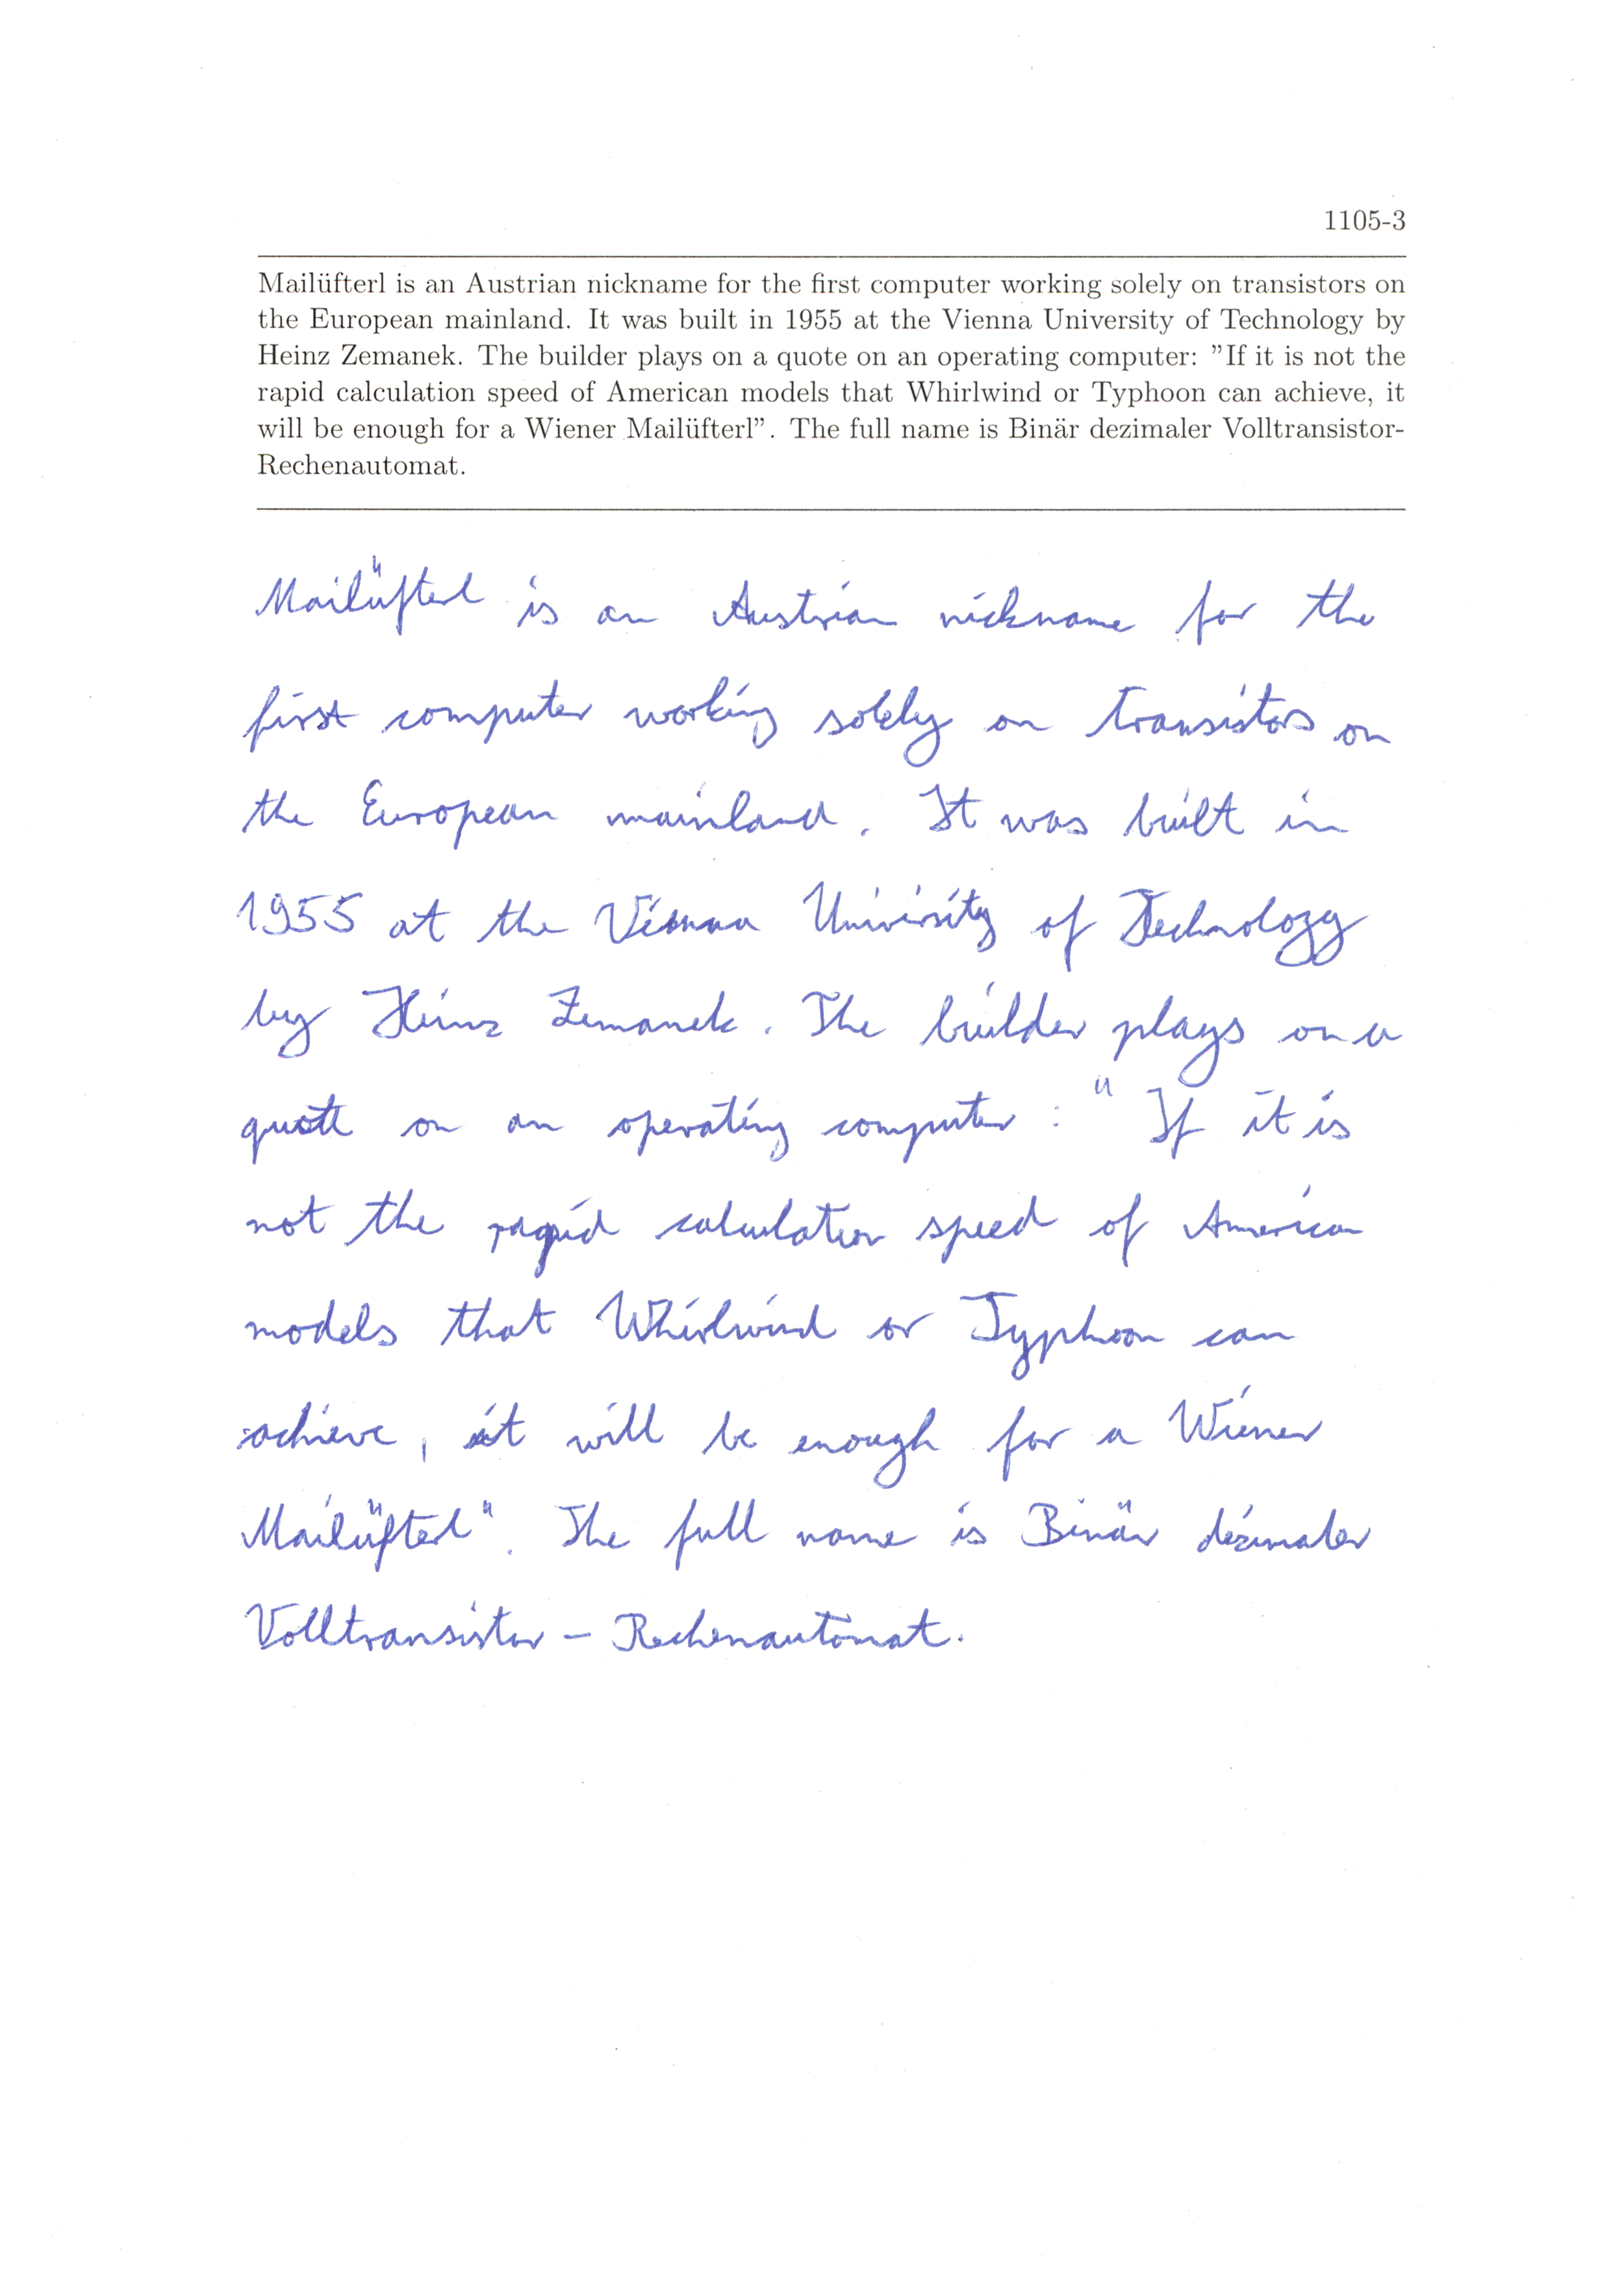 1105-3
Mailüfterl is an Austrian nickname for the first computer working solely on transistors on
the European mainland. It was built in 1955 at the Vienna University of Technology by
Heinz Zemanek. The builder plays on a quote on an operating computer: "If it is not the
rapid calculation speed of American models that Whirlwind or Typhoon can achieve, it
will be enough for a Wiener Mailüfterl". The full name is Binär dezimaler Volltransistor-
Rechenautomat.
Mailüfterl is an Austrian nickname for the
first computer working solely on transistors on
the European mainland. It was built in
1955 at the Vienna University of Technology
by Heinz Zemanek. The builder plays on a
quote on an operating computer: "If it is
not the rapid calculation speed of American
models that Whirlwind or Typhoon can
achieve, it will be enough for a Wiener
Mailüfterl". The full name is Binär dezimaler
Volltransistor-Rechenautomat.